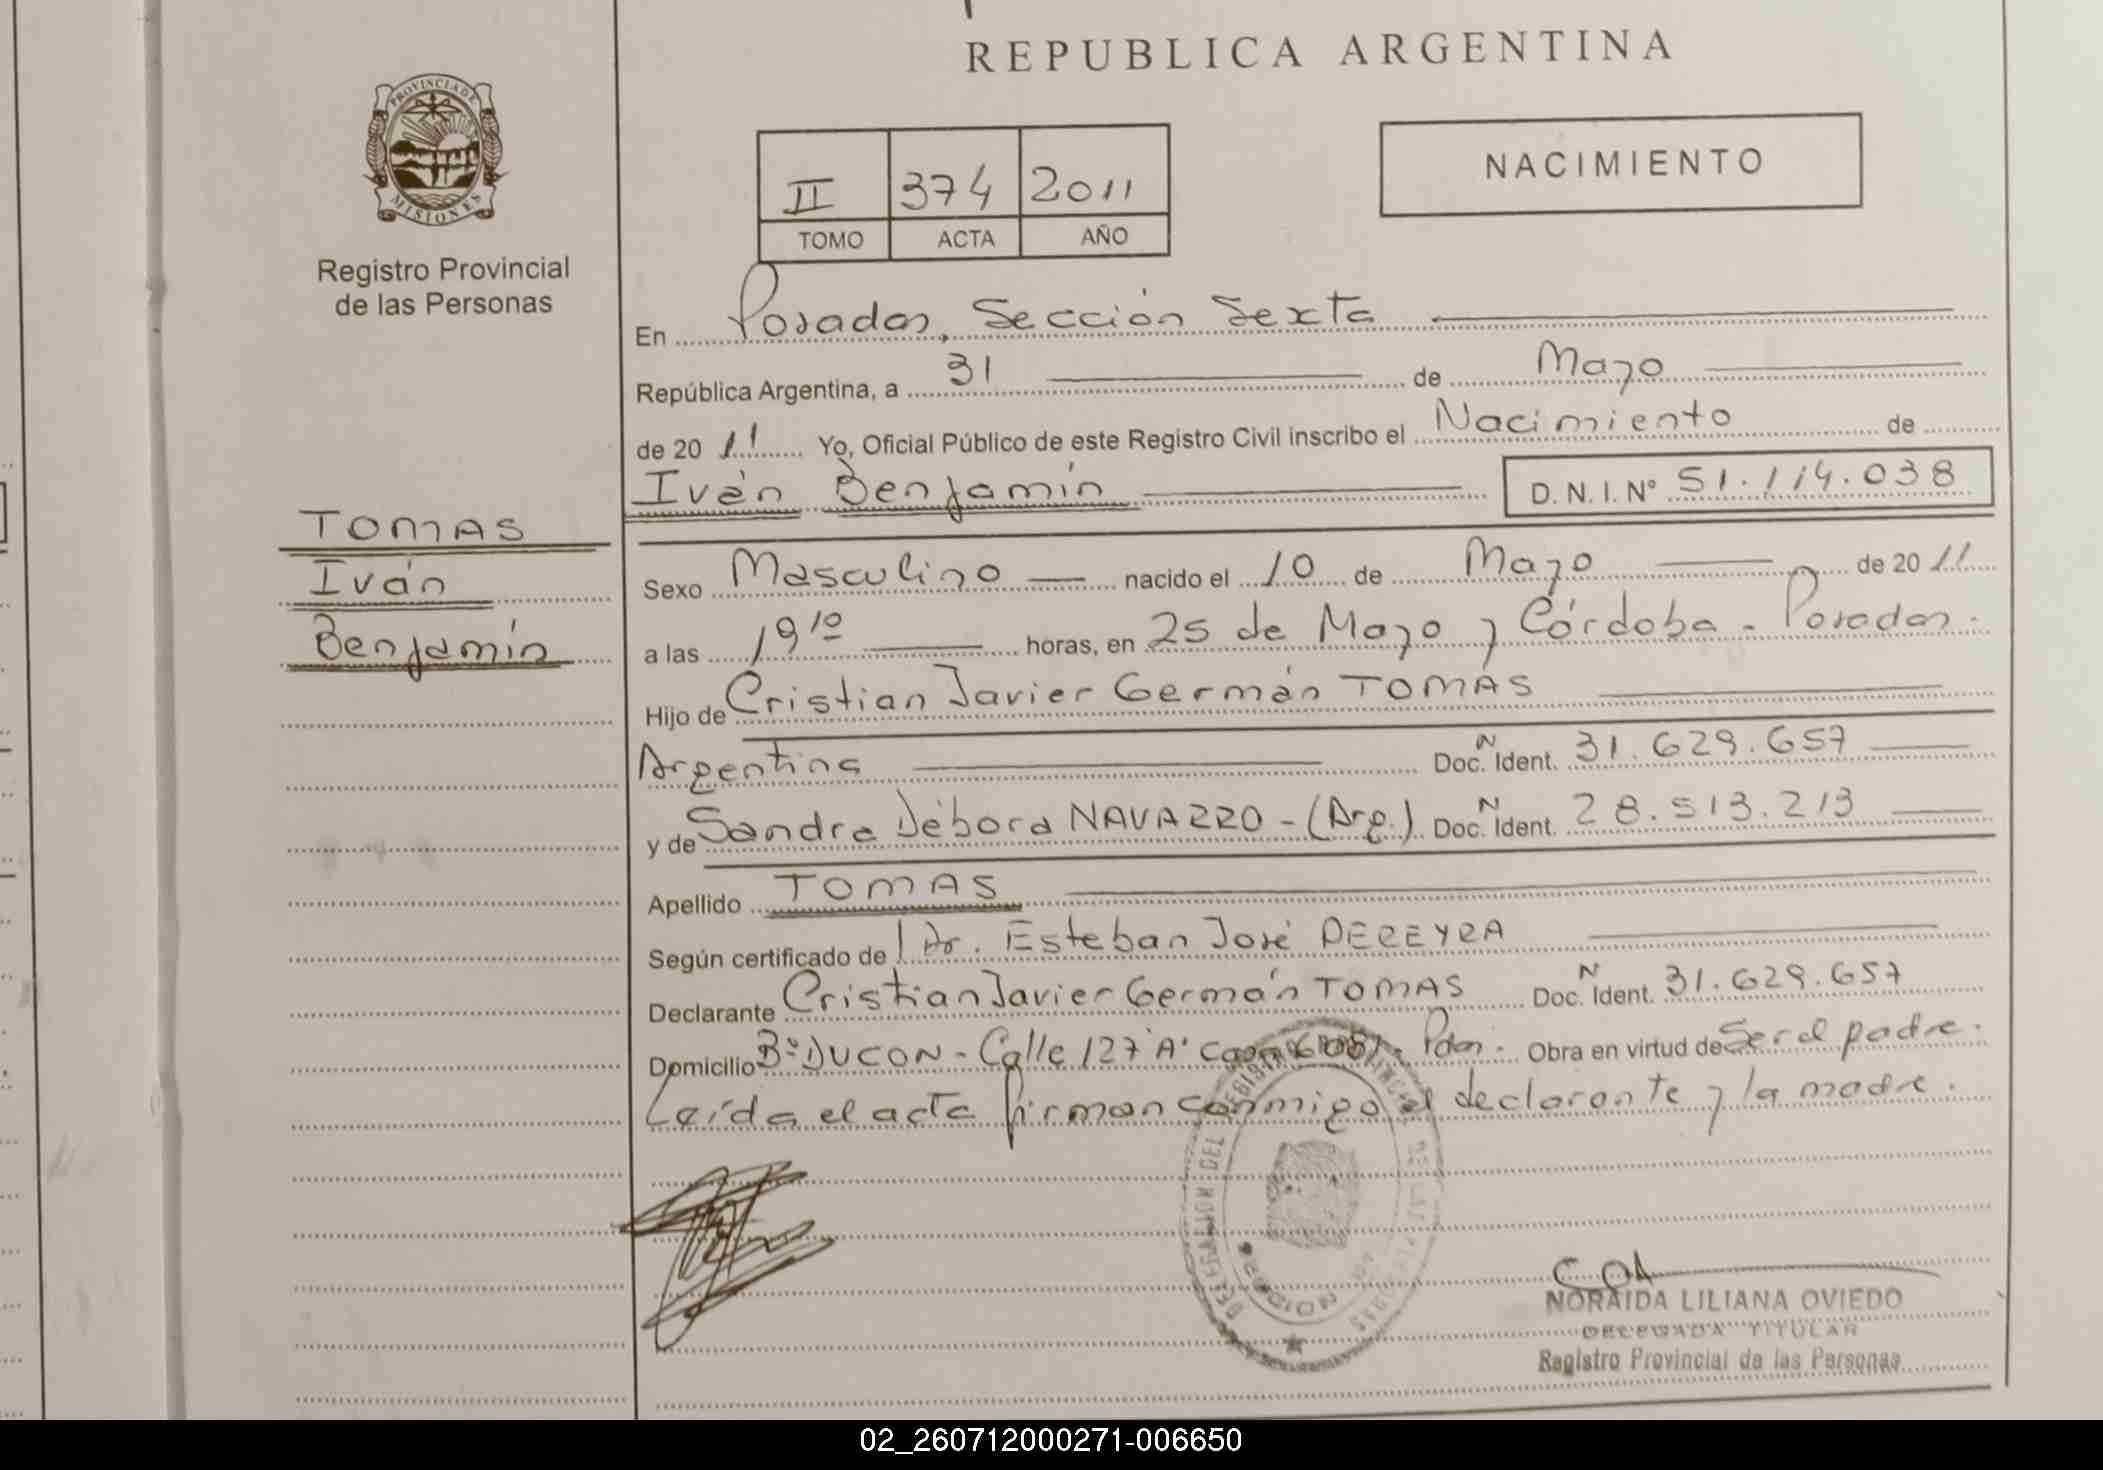 REPUBLICA ARGENTINA
PROVINCIA DE
MISIONES
Registro Provincial
de las Personas
NACIMIENTO
II 374 2011
TOMO ACTA AÑO
En Posadas, Sección Sexta
República Argentina, a 31 de Mayo
de 20 11 Yo, Oficial Público de este Registro Civil inscribo el Nacimiento de
Iván Benjamín D. N. I. Nº 51.114.038
TOMAS
Iván
Benjamín
Sexo Masculino nacido el 10 de Mayo de 20 11
a las 19 10 horas, en 25 de Mayo y Córdoba - Posadas.
Hijo de Cristian Javier Germán TOMAS
Argentina Doc. Ident. 31.629.657
y de Sandra Débora NAVARRO - (Arg.) Doc. Ident. 28.513.213
Apellido TOMAS
Según certificado de Dr. Esteban José PEREYRA
Declarante Cristian Javier Germán TOMAS Doc. Ident. 31.629.657
Domicilio Bº DUCON - Calle 127 "A" casa Pdas. Obra en virtud de Ser el padre.
Leída el acta firman conmigo el declarante y la madre.
NORAIDA LILIANA OVIEDO
DELEGADA TITULAR
Registro Provincial de las Personas
02_260712000271-006650